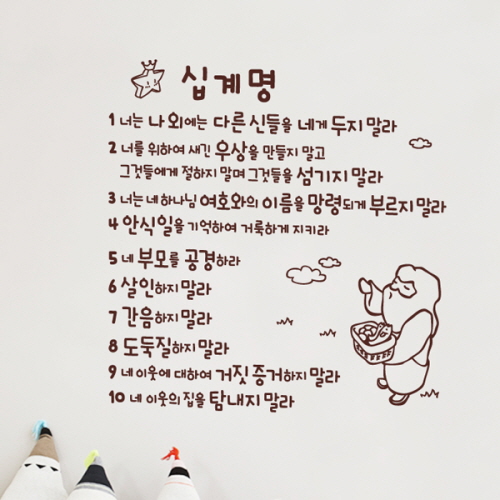 십계명
1 너는 나 외에는 다른 신들을 네게 두지 말라
2 너를 위하여 새긴 우상을 만들지 말고
그것들에게 절하지 말며 그것들을 섬기지 말라
3 너는 네 하나님 여호와의 이름을 망령되게 부르지 말라
4 안식일을 기억하여 거룩하게 지키라
5 네 부모를 공경하라
6 살인하지 말라
7 간음하지 말라
8 도둑질하지 말라
9 네 이웃에 대하여 거짓 증거하지 말라
10 네 이웃의 집을 탐내지 말라